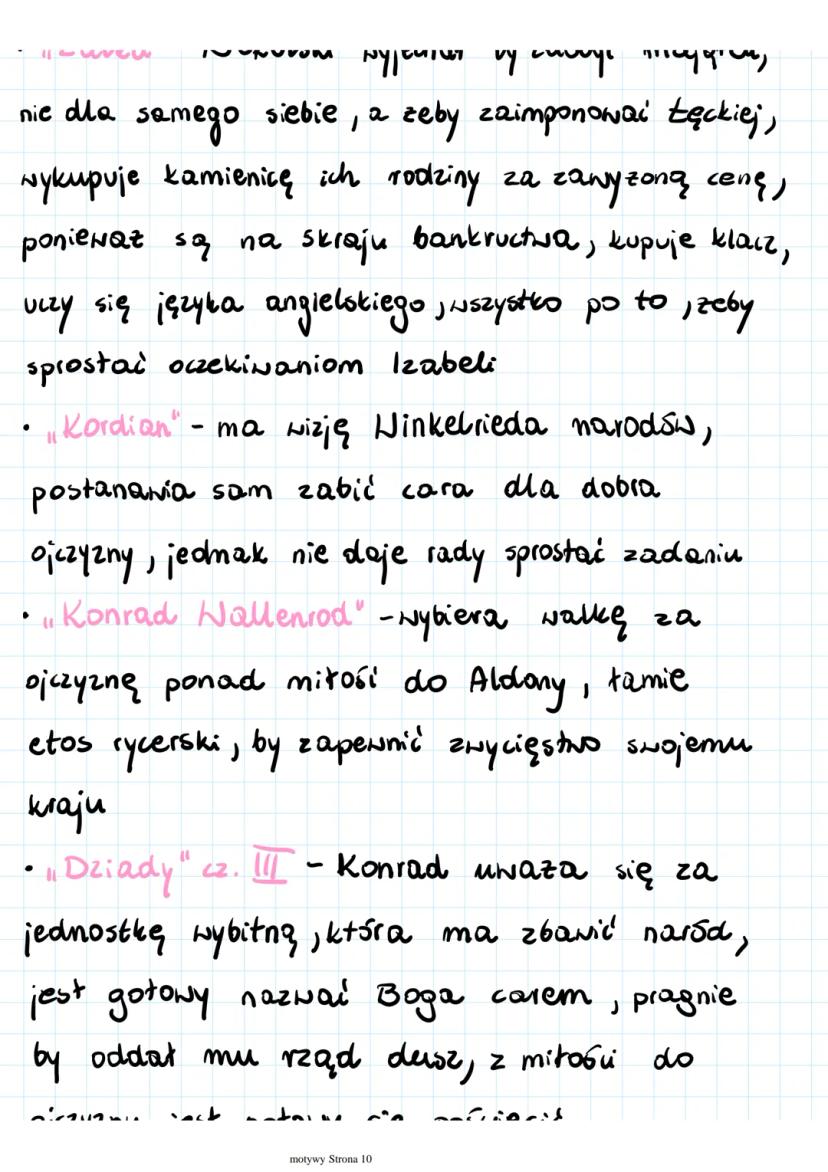 nie dla samego siebie, a żeby zaimponować Łęckiej,
wykupuje kamienicę ich rodziny za zawyżoną cenę,
ponieważ są na skraju bankructwa, kupuje klacz,
uczy się języka angielskiego, wszystko po to, żeby
sprostać oczekiwaniom Izabeli
• „Kordian" - ma wizję Winkelrieda narodów,
postanawia sam zabić cara dla dobra
ojczyzny, jednak nie daje rady sprostać zadaniu
• „Konrad Wallenrod" - wybiera walkę za
ojczyznę ponad miłość do Aldony, łamie
etos rycerski, by zapewnić zwycięstwo swojemu
kraju
• „Dziady" cz. III - Konrad uważa się za
jednostkę wybitną, która ma zbawić naród,
jest gotowy nazwać Boga carem, pragnie
by oddał mu rząd dusz, z miłości do
motywy Strona 10